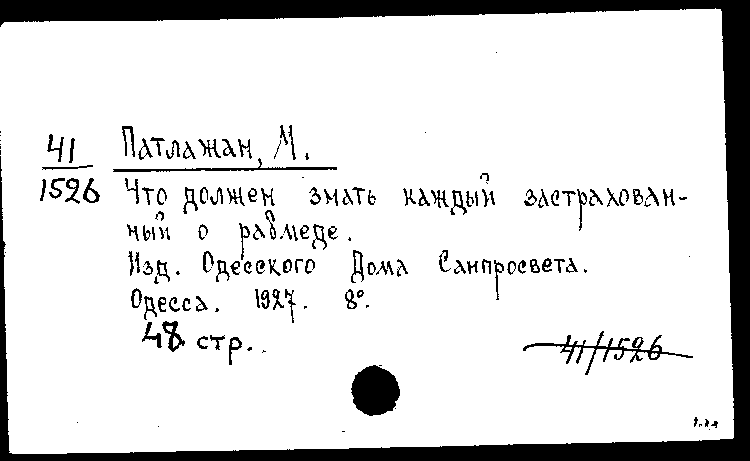 41
1526
Патлажан, М.
Что должен знать каждый застрахован-
ный о рабмеде.
Изд. Одесского Дома Санпросвета.
Одесса. 1927. 8°.
48 стр.
41/1526